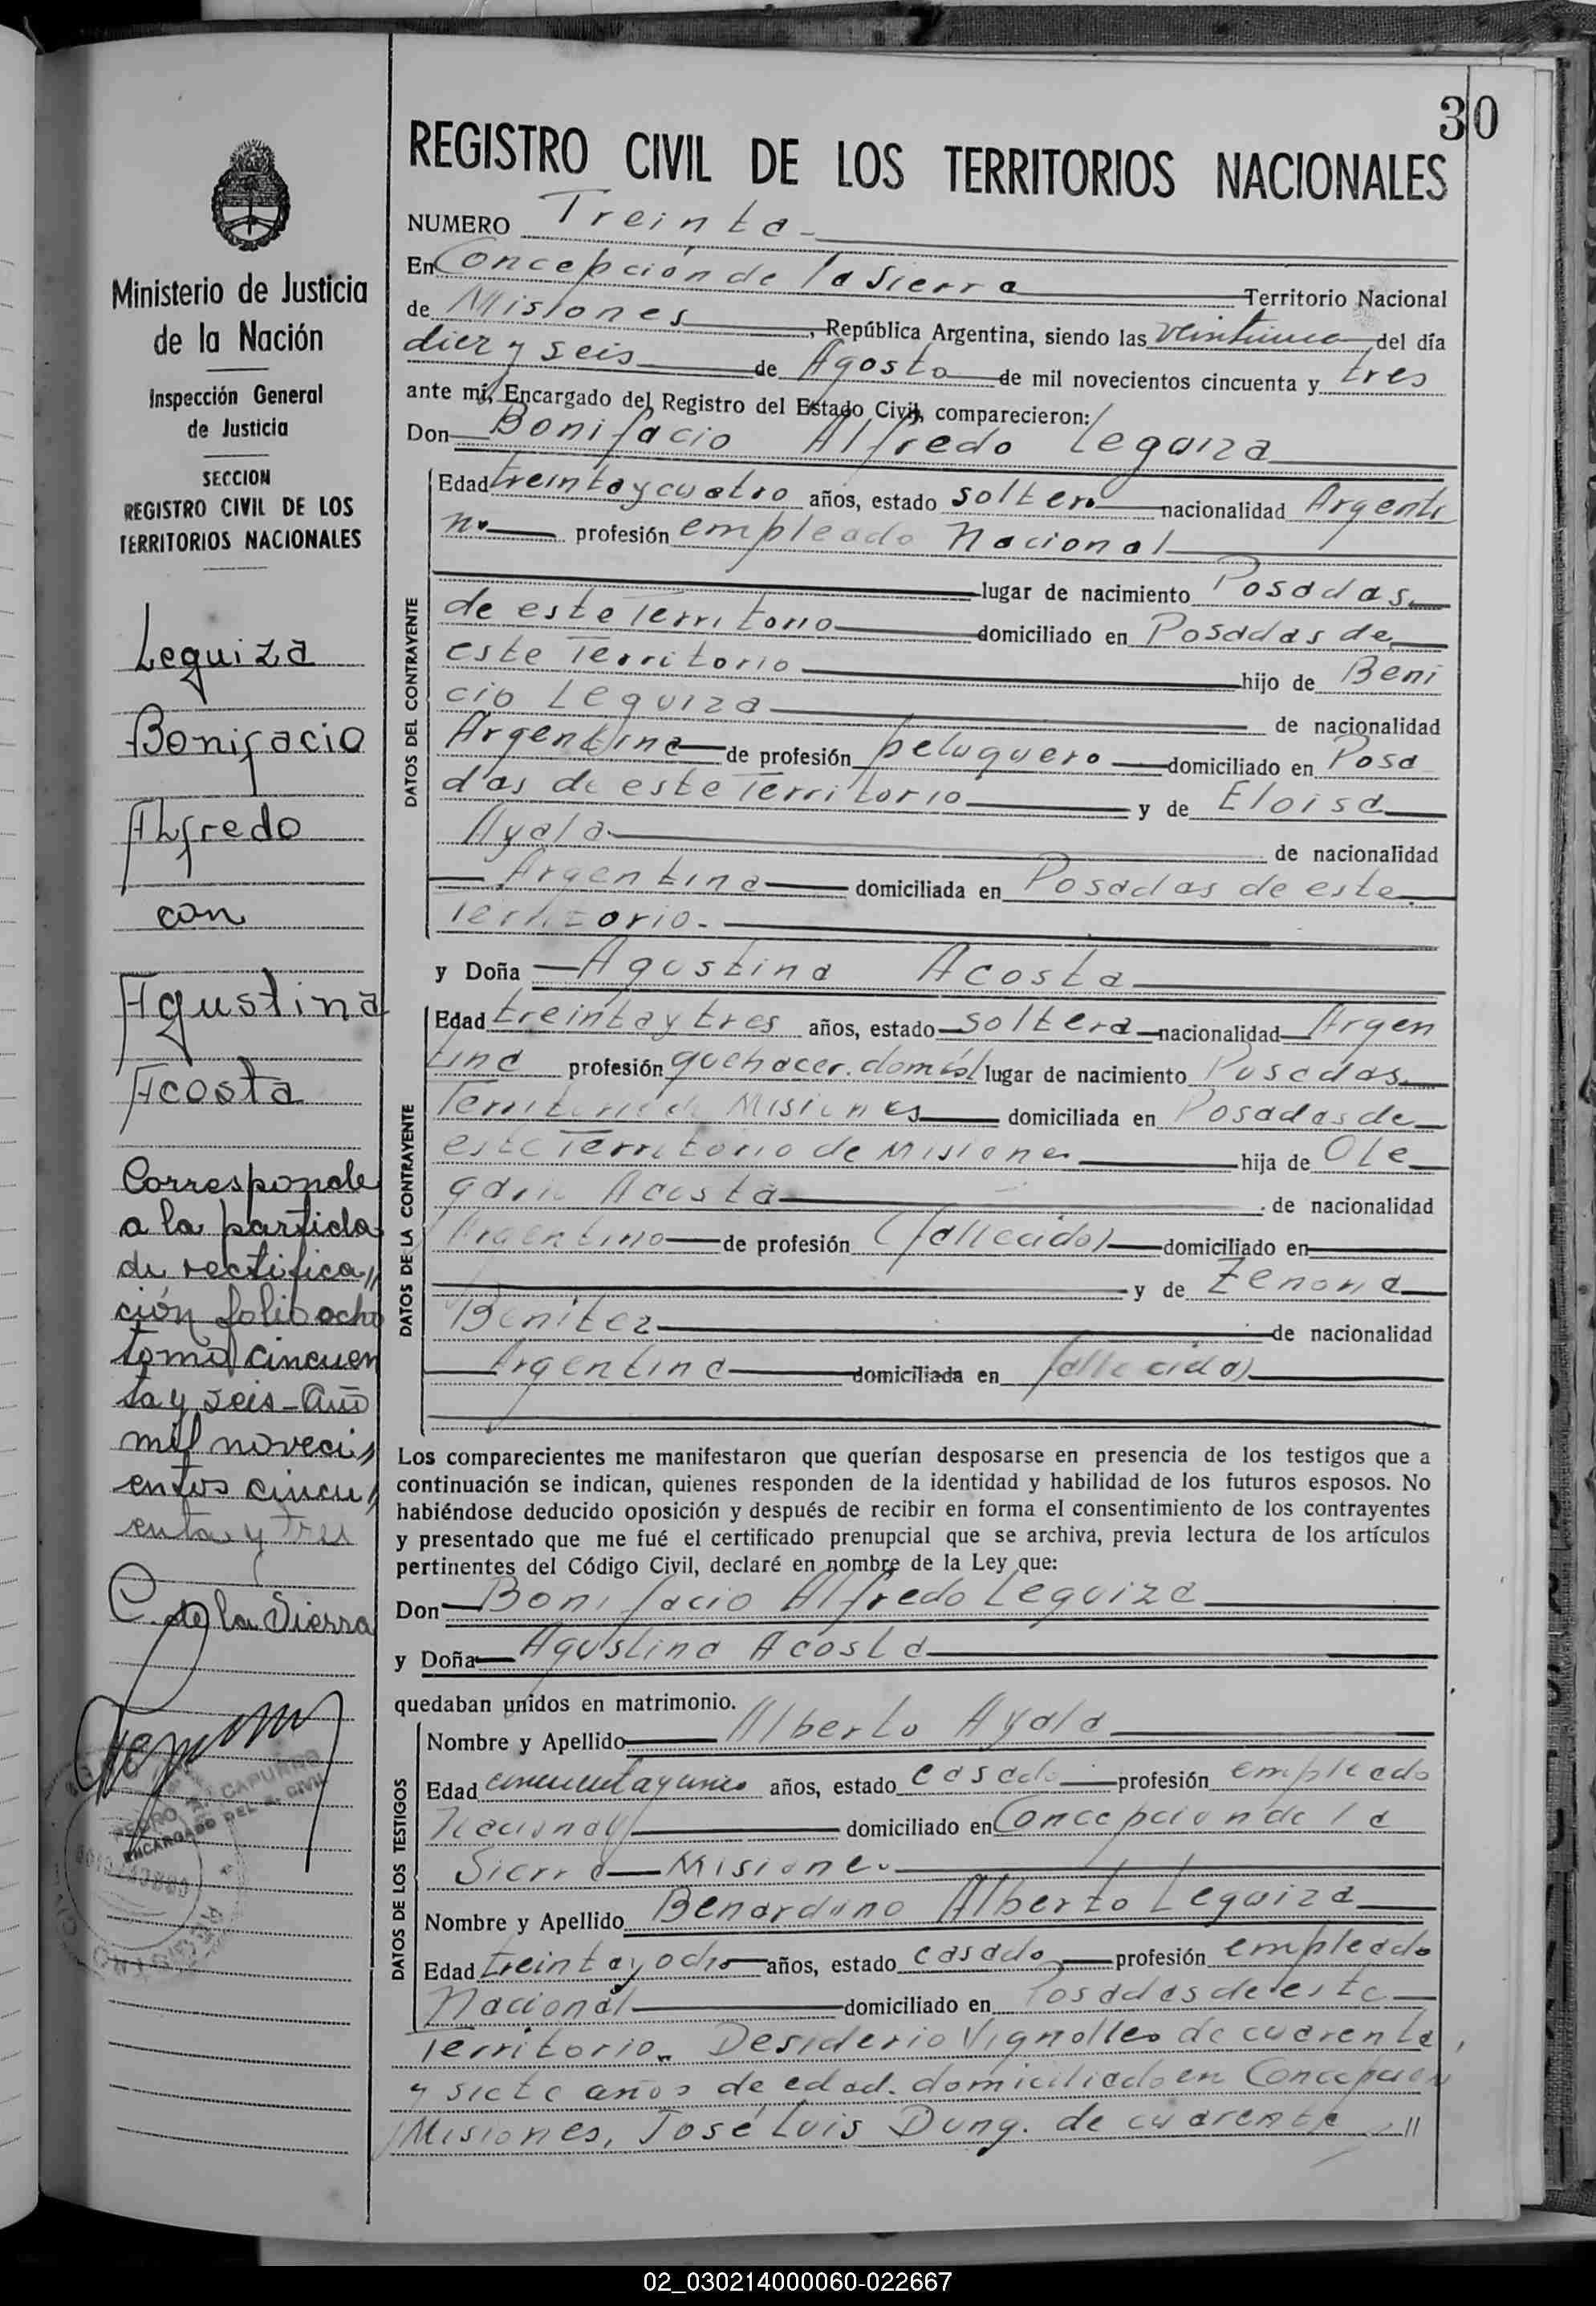 30
REGISTRO CIVIL DE LOS TERRITORIOS NACIONALES
NUMERO Treinta
En Concepción de la Sierra Territorio Nacional
de Misiones, República Argentina, siendo las veintiuna del día
diez y seis de Agosto de mil novecientos cincuenta y tres
ante mí, Encargado del Registro del Estado Civil, comparecieron:
Don Bonifacio Alfredo Leguiza
DATOS DEL CONTRAYENTE
Edad treinta y cuatro años, estado soltero nacionalidad Argenti
no profesión empleado Nacional
lugar de nacimiento Posadas
de este Territorio domiciliado en Posadas de
este Territorio hijo de Beni
cio Leguiza de nacionalidad
Argentina de profesión peluquero domiciliado en Posa
das de este Territorio y de Eloisa
Ayala de nacionalidad
Argentina domiciliada en Posadas de este
Territorio.
y Doña Agustina Acosta
DATOS DE LA CONTRAYENTE
Edad treinta y tres años, estado soltera nacionalidad Argen
tina profesión quehacer. domést lugar de nacimiento Posadas
Territorio de Misiones domiciliada en Posadas de
este Territorio de Misiones hija de Ole
gario Acosta de nacionalidad
Argentino de profesión (fallecido) domiciliado en
y de Zenona
Benitez de nacionalidad
Argentina domiciliada en fallecida)
Los comparecientes me manifestaron que querían desposarse en presencia de los testigos que a
continuación se indican, quienes responden de la identidad y habilidad de los futuros esposos. No
habiéndose deducido oposición y después de recibir en forma el consentimiento de los contrayentes
y presentado que me fué el certificado prenupcial que se archiva, previa lectura de los artículos
pertinentes del Código Civil, declaré en nombre de la Ley que:
Don Bonifacio Alfredo Leguiza
y Doña Agustina Acosta
quedaban unidos en matrimonio.
DATOS DE LOS TESTIGOS
Nombre y Apellido Alberto Ayala
Edad cincuenta y cinco años, estado casado profesión empleado
Nacional domiciliado en Concepcion de la
Sierra Misiones
Nombre y Apellido Benardino Alberto Leguiza
Edad treinta y ocho años, estado casado profesión empleado
Nacional domiciliado en Posadas de este
Territorio. Desiderio Vignolles de cuarenta
y siete años de edad. domiciliado en Concepcion
Misiones, José Luis Dung. de cuarenta //
Ministerio de Justicia
de la Nación
Inspección General
de Justicia
SECCION
REGISTRO CIVIL DE LOS
TERRITORIOS NACIONALES
Leguiza
Bonifacio
Alfredo
con
Agustina
Acosta
Corresponde
a la partida
de rectifica//
ción folio ocho
tomo cincuen
ta y seis-Año
mil noveci//
entos cincu//
enta y tres
C. de la Sierra
PEDRO A. CAPURRO
ENCARGADO DEL R. CIVIL
02_030214000060-022667